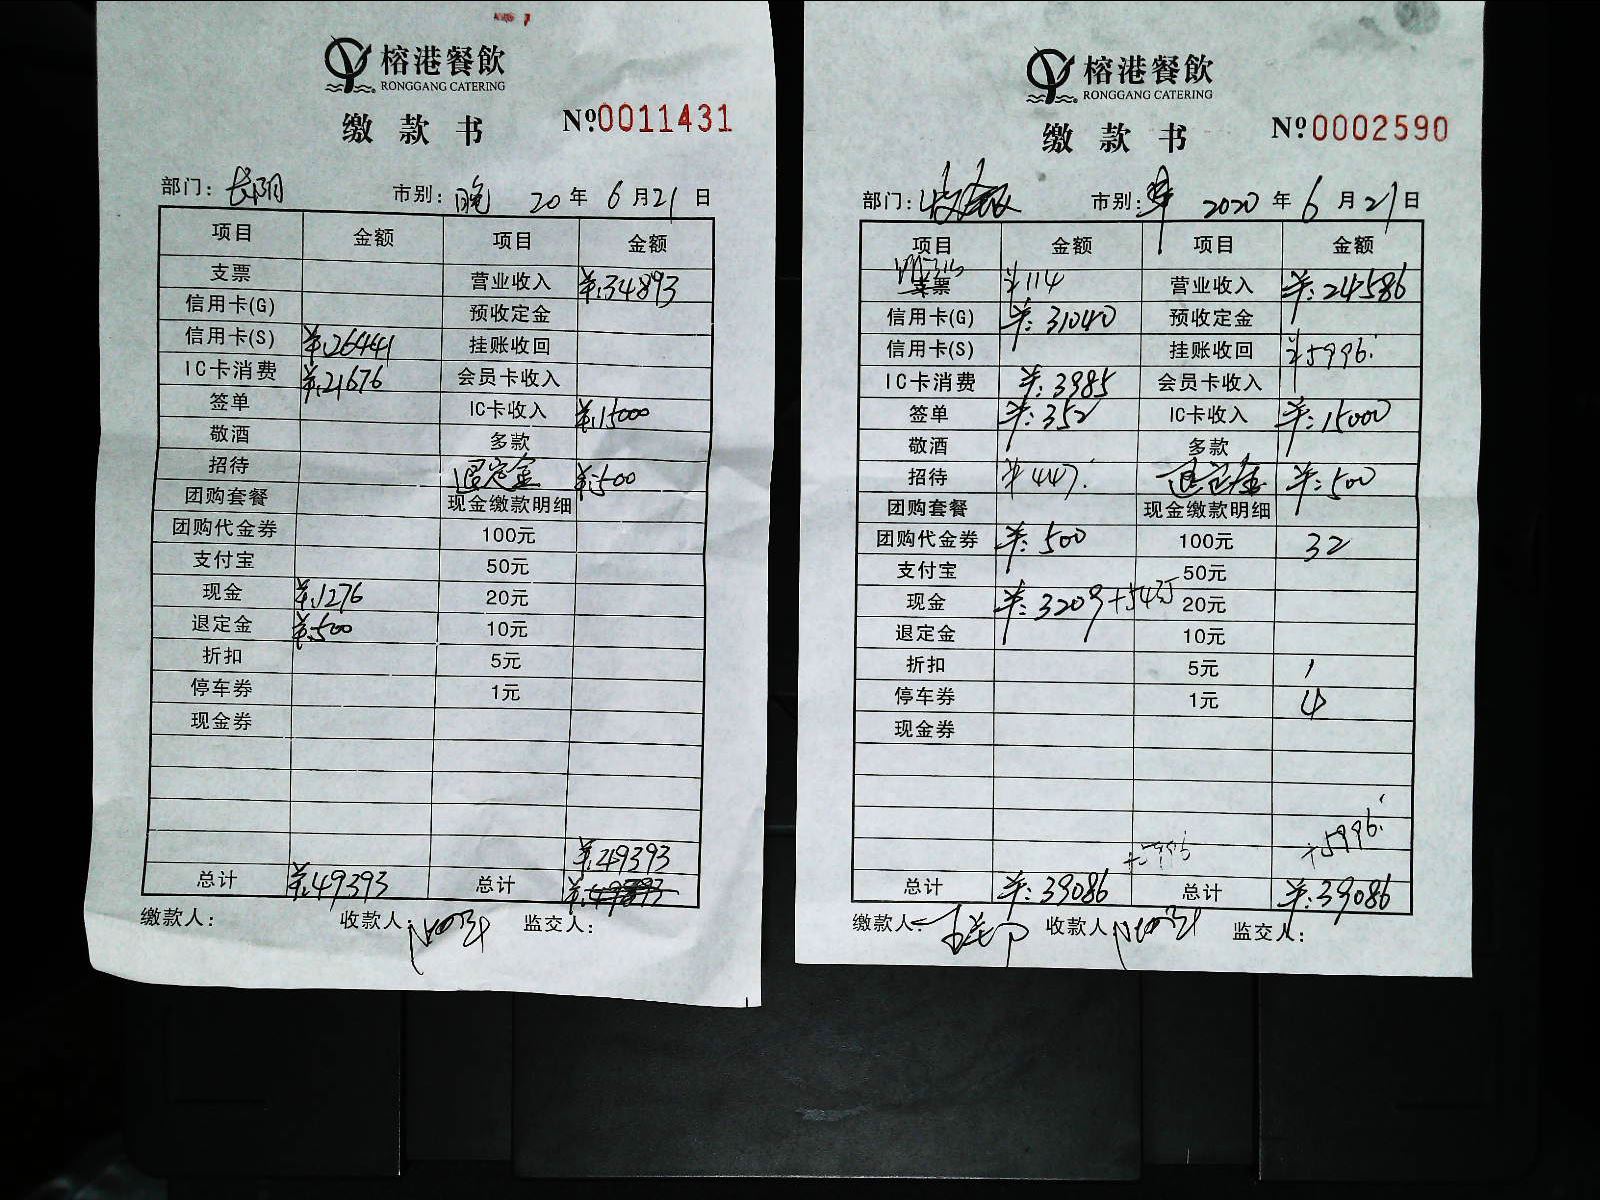 榕港餐飲
RONGGANG CATERING
缴款书
№0011431
部门：长阳 市别：晚 20年6月21日
项目 金额 项目 金额
支票 营业收入 ¥34893
信用卡(G) 预收定金
信用卡(S) ¥26441 挂账收回
IC卡消费 ¥21676 会员卡收入
签单 IC卡收入 ¥15000
敬酒 多款
招待 退定金 ¥500
团购套餐 现金缴款明细
团购代金券 100元
支付宝 50元
现金 ¥1276 20元
退定金 ¥500 10元
折扣 5元
停车券 1元
现金券
¥49393
总计 ¥49393 总计
缴款人： 收款人： 监交人：
榕港餐飲
RONGGANG CATERING
缴款书
№0002590
部门： 市别：早 2020年6月21日
项目 金额 项目 金额
支票 ¥114 营业收入 ¥：24586
信用卡(G) ¥：31040 预收定金
信用卡(S) 挂账收回 ¥5996
IC卡消费 ¥：3985 会员卡收入
签单 ¥：352 IC卡收入 ¥：15000
敬酒 多款
招待 ¥447 退定金 ¥：500
团购套餐 现金缴款明细
团购代金券 ¥：500 100元 32
支付宝 50元
现金 ¥：3209 20元
退定金 10元
折扣 5元 1
停车券 1元 4
现金券
+5996
总计 ¥：39086 总计 ¥：39086
缴款人： 收款人： 监交人：